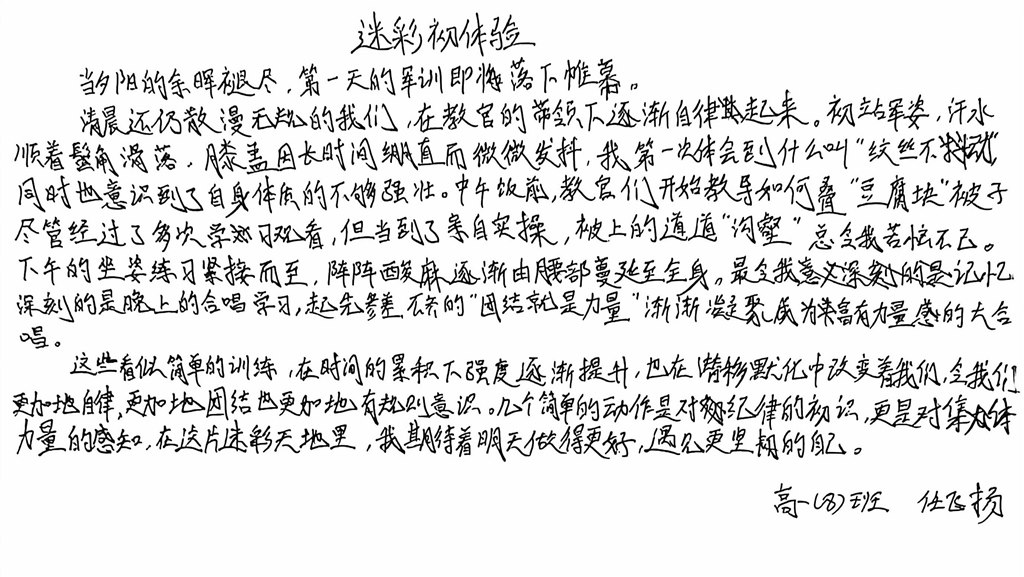 迷彩初体验
当夕阳的余晖褪尽，第一天的军训即将落下帷幕。
清晨还仍散漫无规的我们，在教官的带领下逐渐自律起来。初站军姿，汗水
顺着鬓角滑落，膝盖因长时间绷直而微微发抖，我第一次体会到什么叫“纹丝不动”，
同时也意识到了自身体质的不够强壮。中午饭前，教官们开始教导如何叠“豆腐块”被子
尽管经过了多次学习观看，但当到了亲自实操，被上的道道“沟壑”总令我苦恼不已。
下午的坐姿练习紧接而至，阵阵酸麻逐渐由腰部蔓延至全身。最令我意义深刻的是记忆
深刻的是晚上的合唱学习，起先参差不齐的“团结就是力量”渐渐凝聚成为富有力量感的大合
唱。
这些看似简单的训练，在时间的累积下强度逐渐提升，也在潜移默化中改变着我们，令我们
更加地自律，更加地团结也更加地有规则意识。几个简单的动作是对纪律的初识，更是对集体
力量的感知，在这片迷彩天地里，我期待着明天做得更好，遇见更坚韧的自己。
高一(8)班 任飞扬